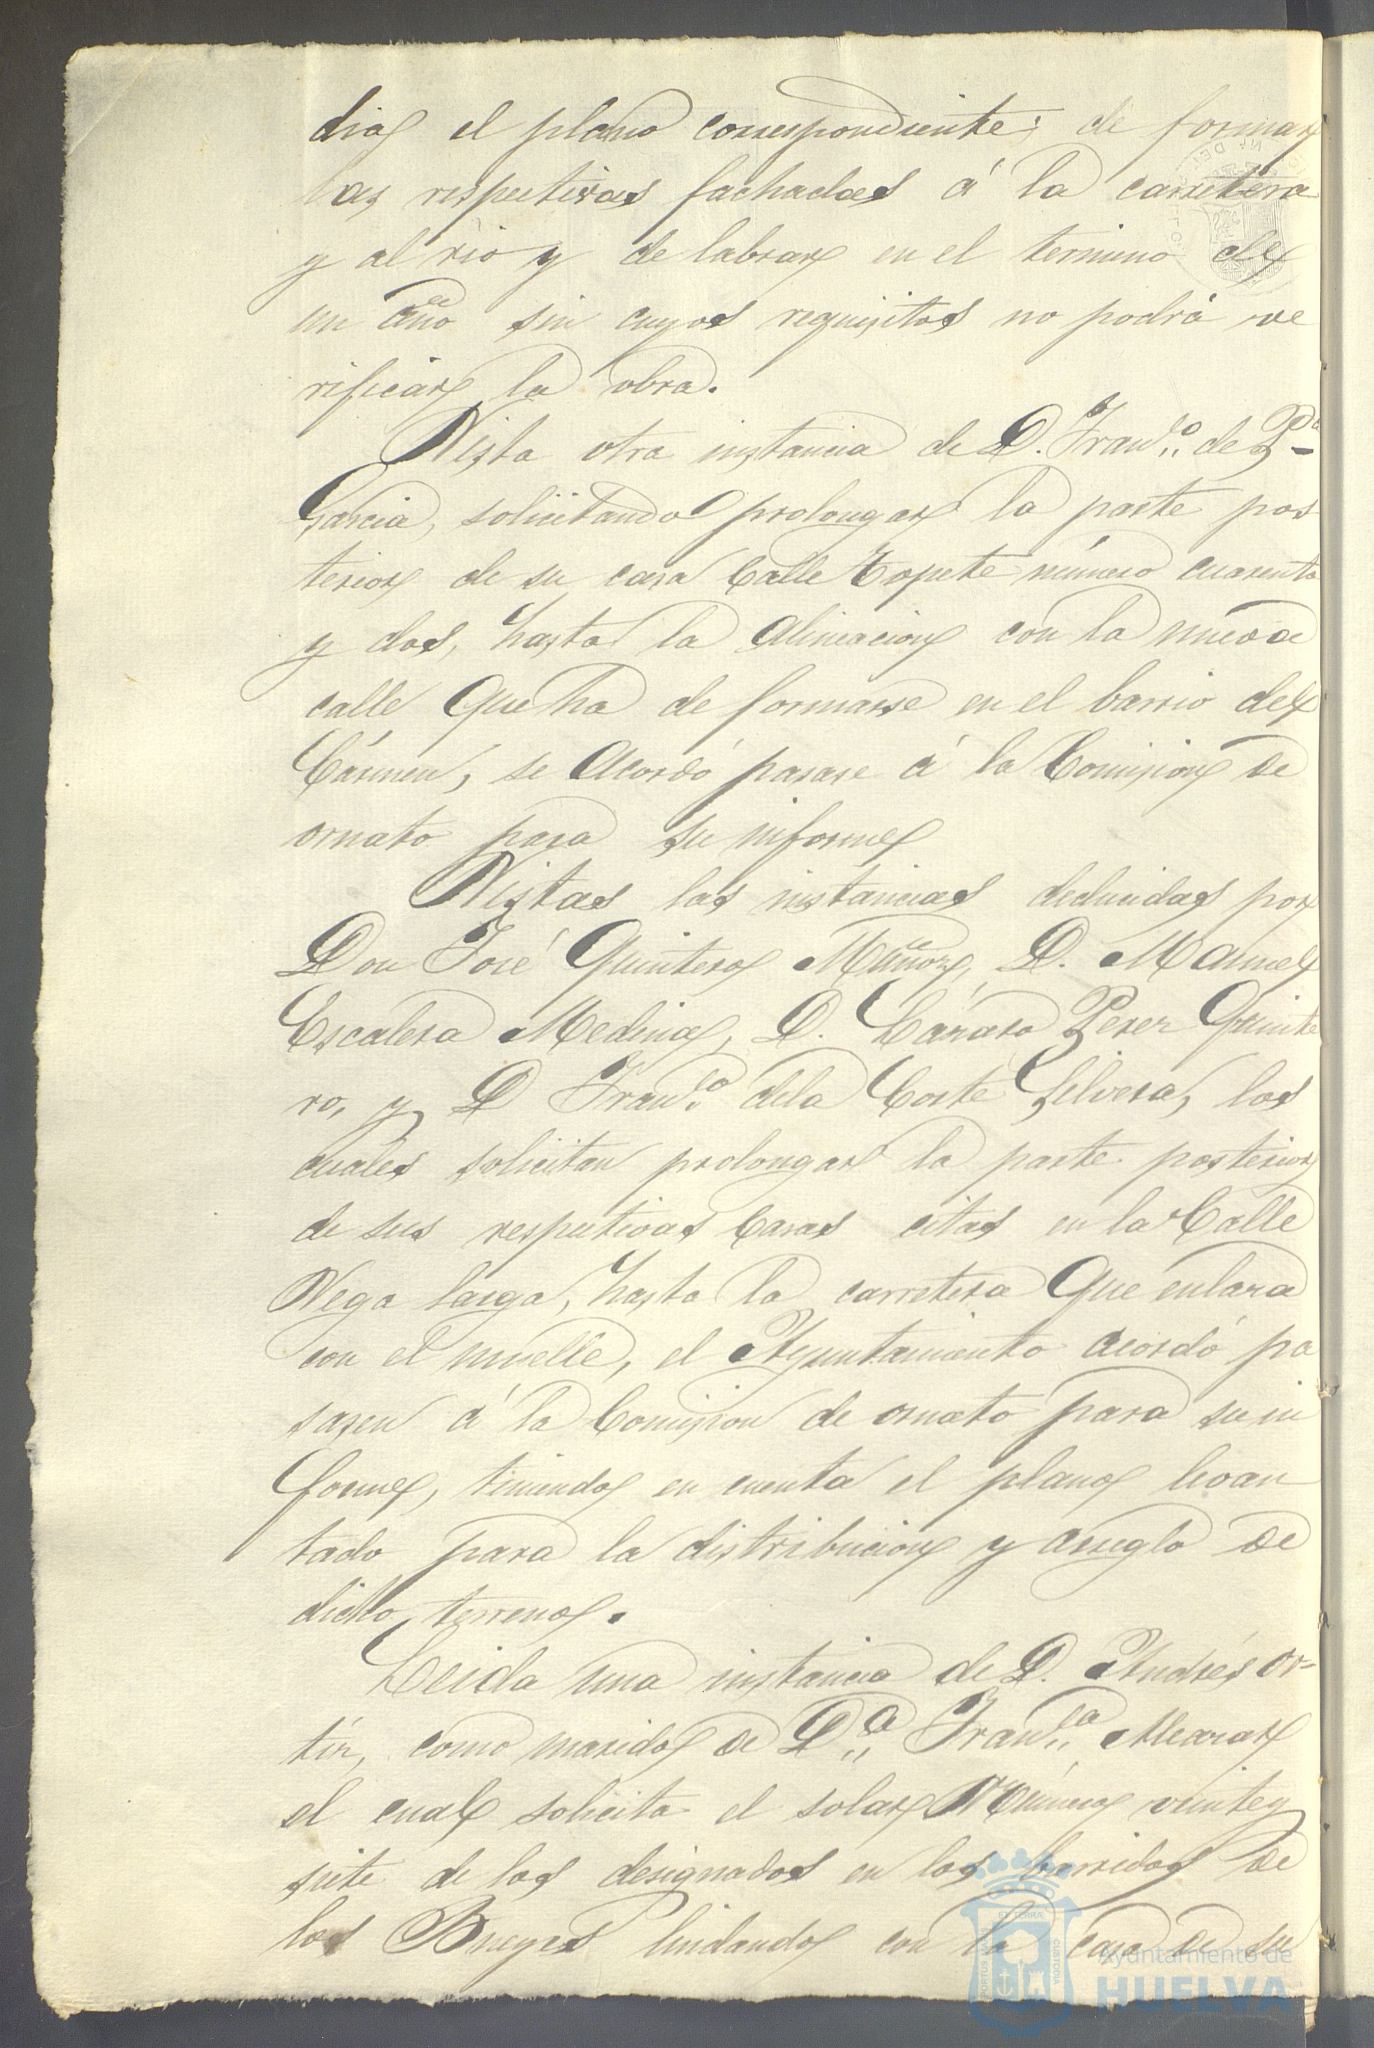 dias el plano correspondiente; de formar
las respectivas fachadas á la carretera
y al rio y de labrar en el termino de
un año sin cuyos requisitos no podrá ve
rificar la obra.
Vista otra instancia de D. Franco. de Pa.
Garcia, solicitando prolongar la parte pos
terior de su casa Calle Topete número cuarenta
y dos, hasta la alineacion con la nueva
calle que ha de formarse en el barrio del
Cármen, se acordó pasase á la Comision de
ornato para su informe
Vistas las instancias deducidas por
Don José Quintero Muñoz, D. Manuel
Escalera Medina, D. Lázaro Perez Quinte
ro, y D Franco. de la Corte Silvera, los
cuales solicitan prolongar la parte posterior
de sus respectivas Casas citas en la Calle
Vega larga, hasta la carretera que enlaza
con el muelle, el Ayuntamiento acordó pa
sasen á la Comision de ornato para su in
forme, teniendo en cuenta el plano levan
tado para la distribucion y arreglo de
dicho terreno.
Leida una instancia de D. Andrés Or-
tiz, como marido de Da. Franca.
el cual solicita el solar Número veintey
siete de los designados en los barridos de
los Bueyes lindando con la casa de su
Ayuntamiento de
HUELVA